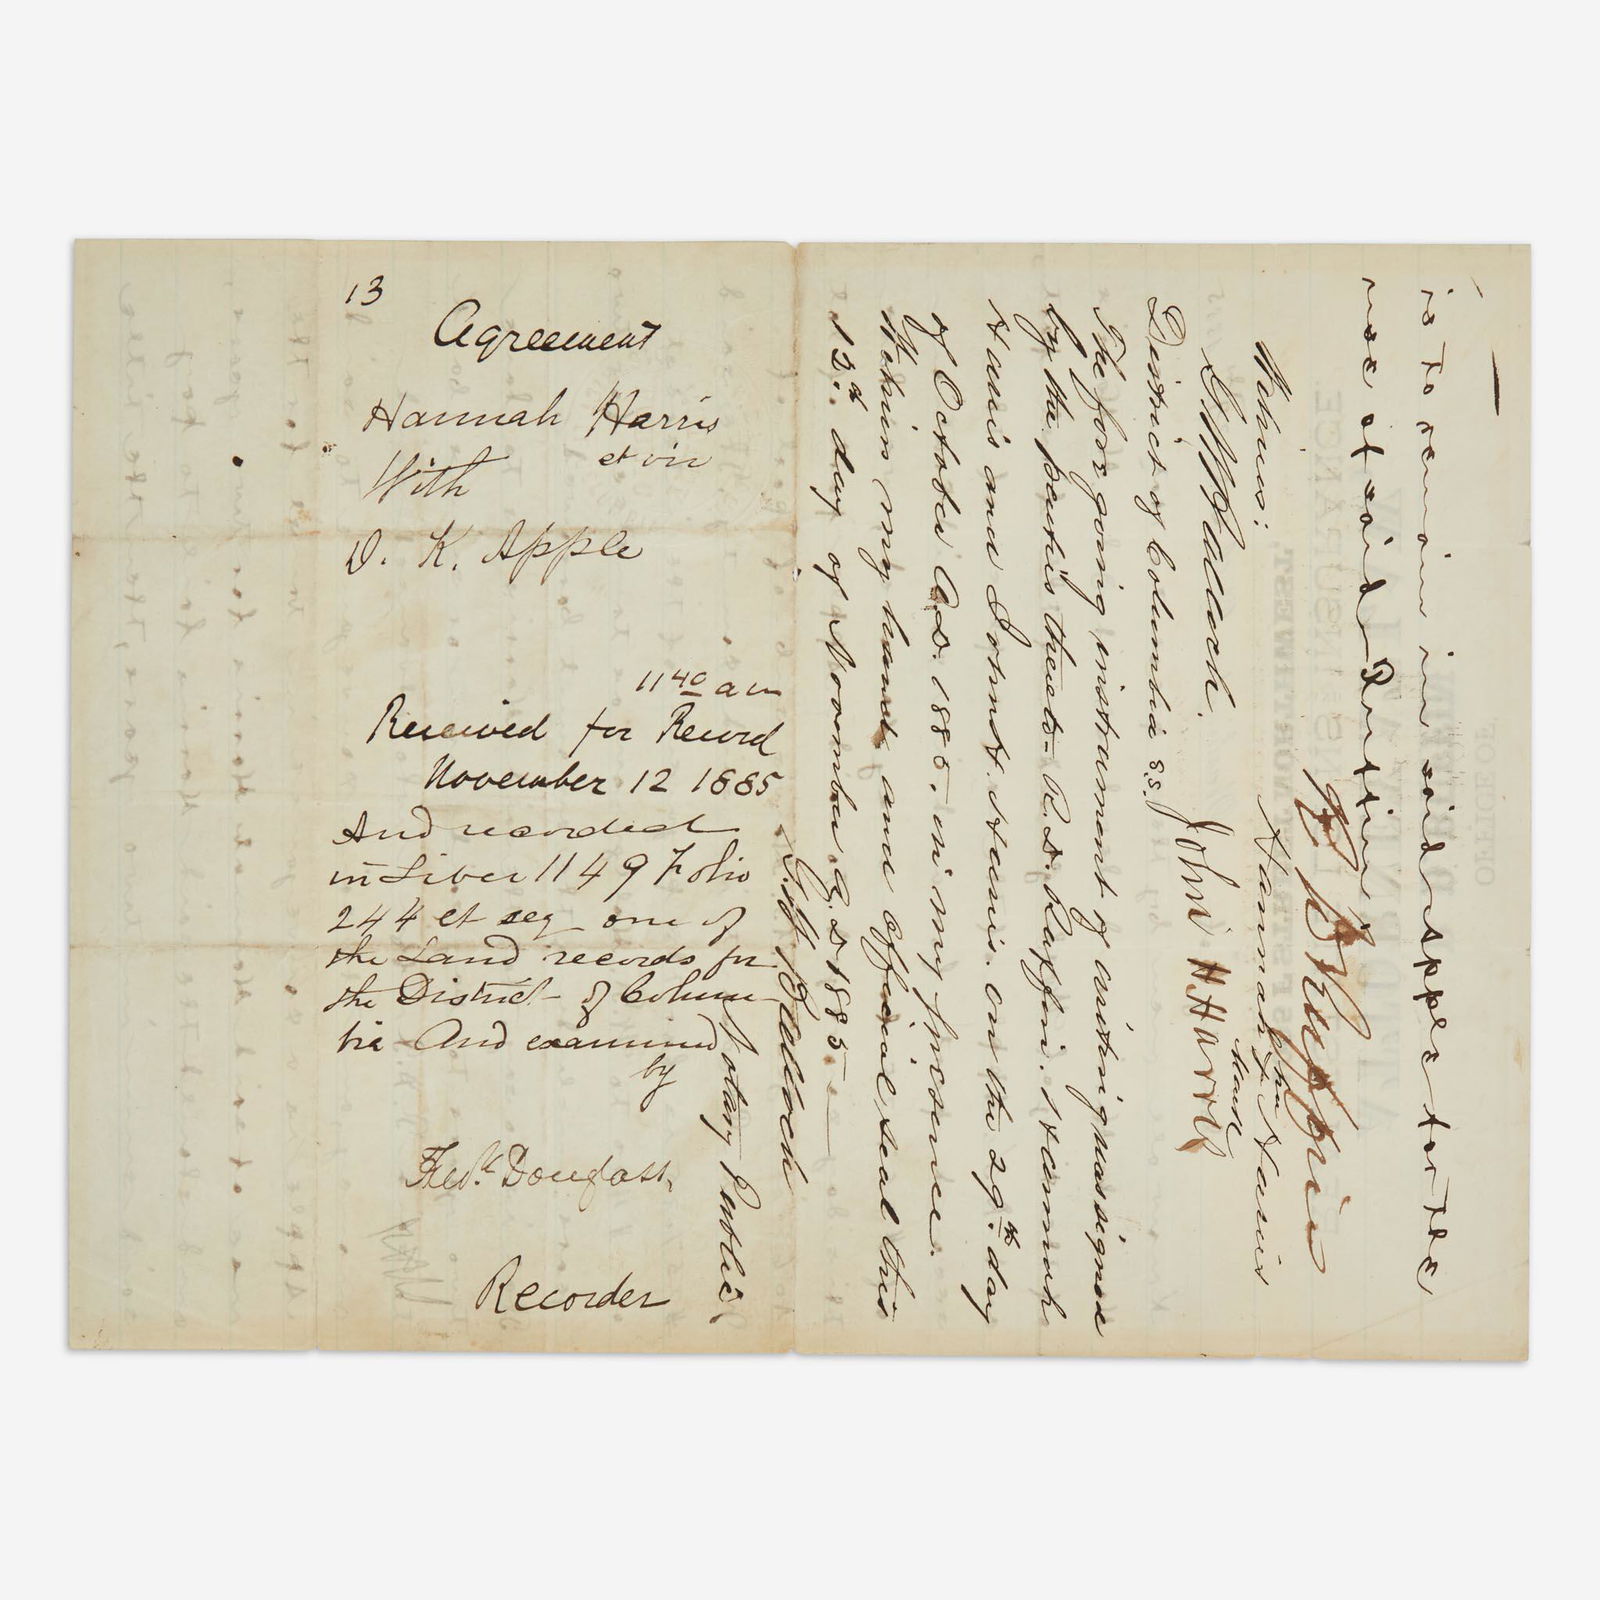 13
Agreement
Hannah Harris
et vir
With
D. K. Apple
11 40 a m
Received for Record
November 12 1885
And recorded
in Liber 1149 Folio
244 et seq one of
the Land records for
the District of Colum
bia And examined
by
Fredk. Douglass,
Recorder
is to remain in said Apple for the
use of said
Witness:
Hannah her Harris
mark
John H Harris
District of Columbia s.s.
The foregoing instrument of writing was signed
by the parties thereto R. D. Ruffin. Hannah
Harris and John H. Harris. on the 29th. day
of October A.D. 1885. in my presence.
Witness my hand and official seal this
12th. day of November A.D 1885
Notary Public.